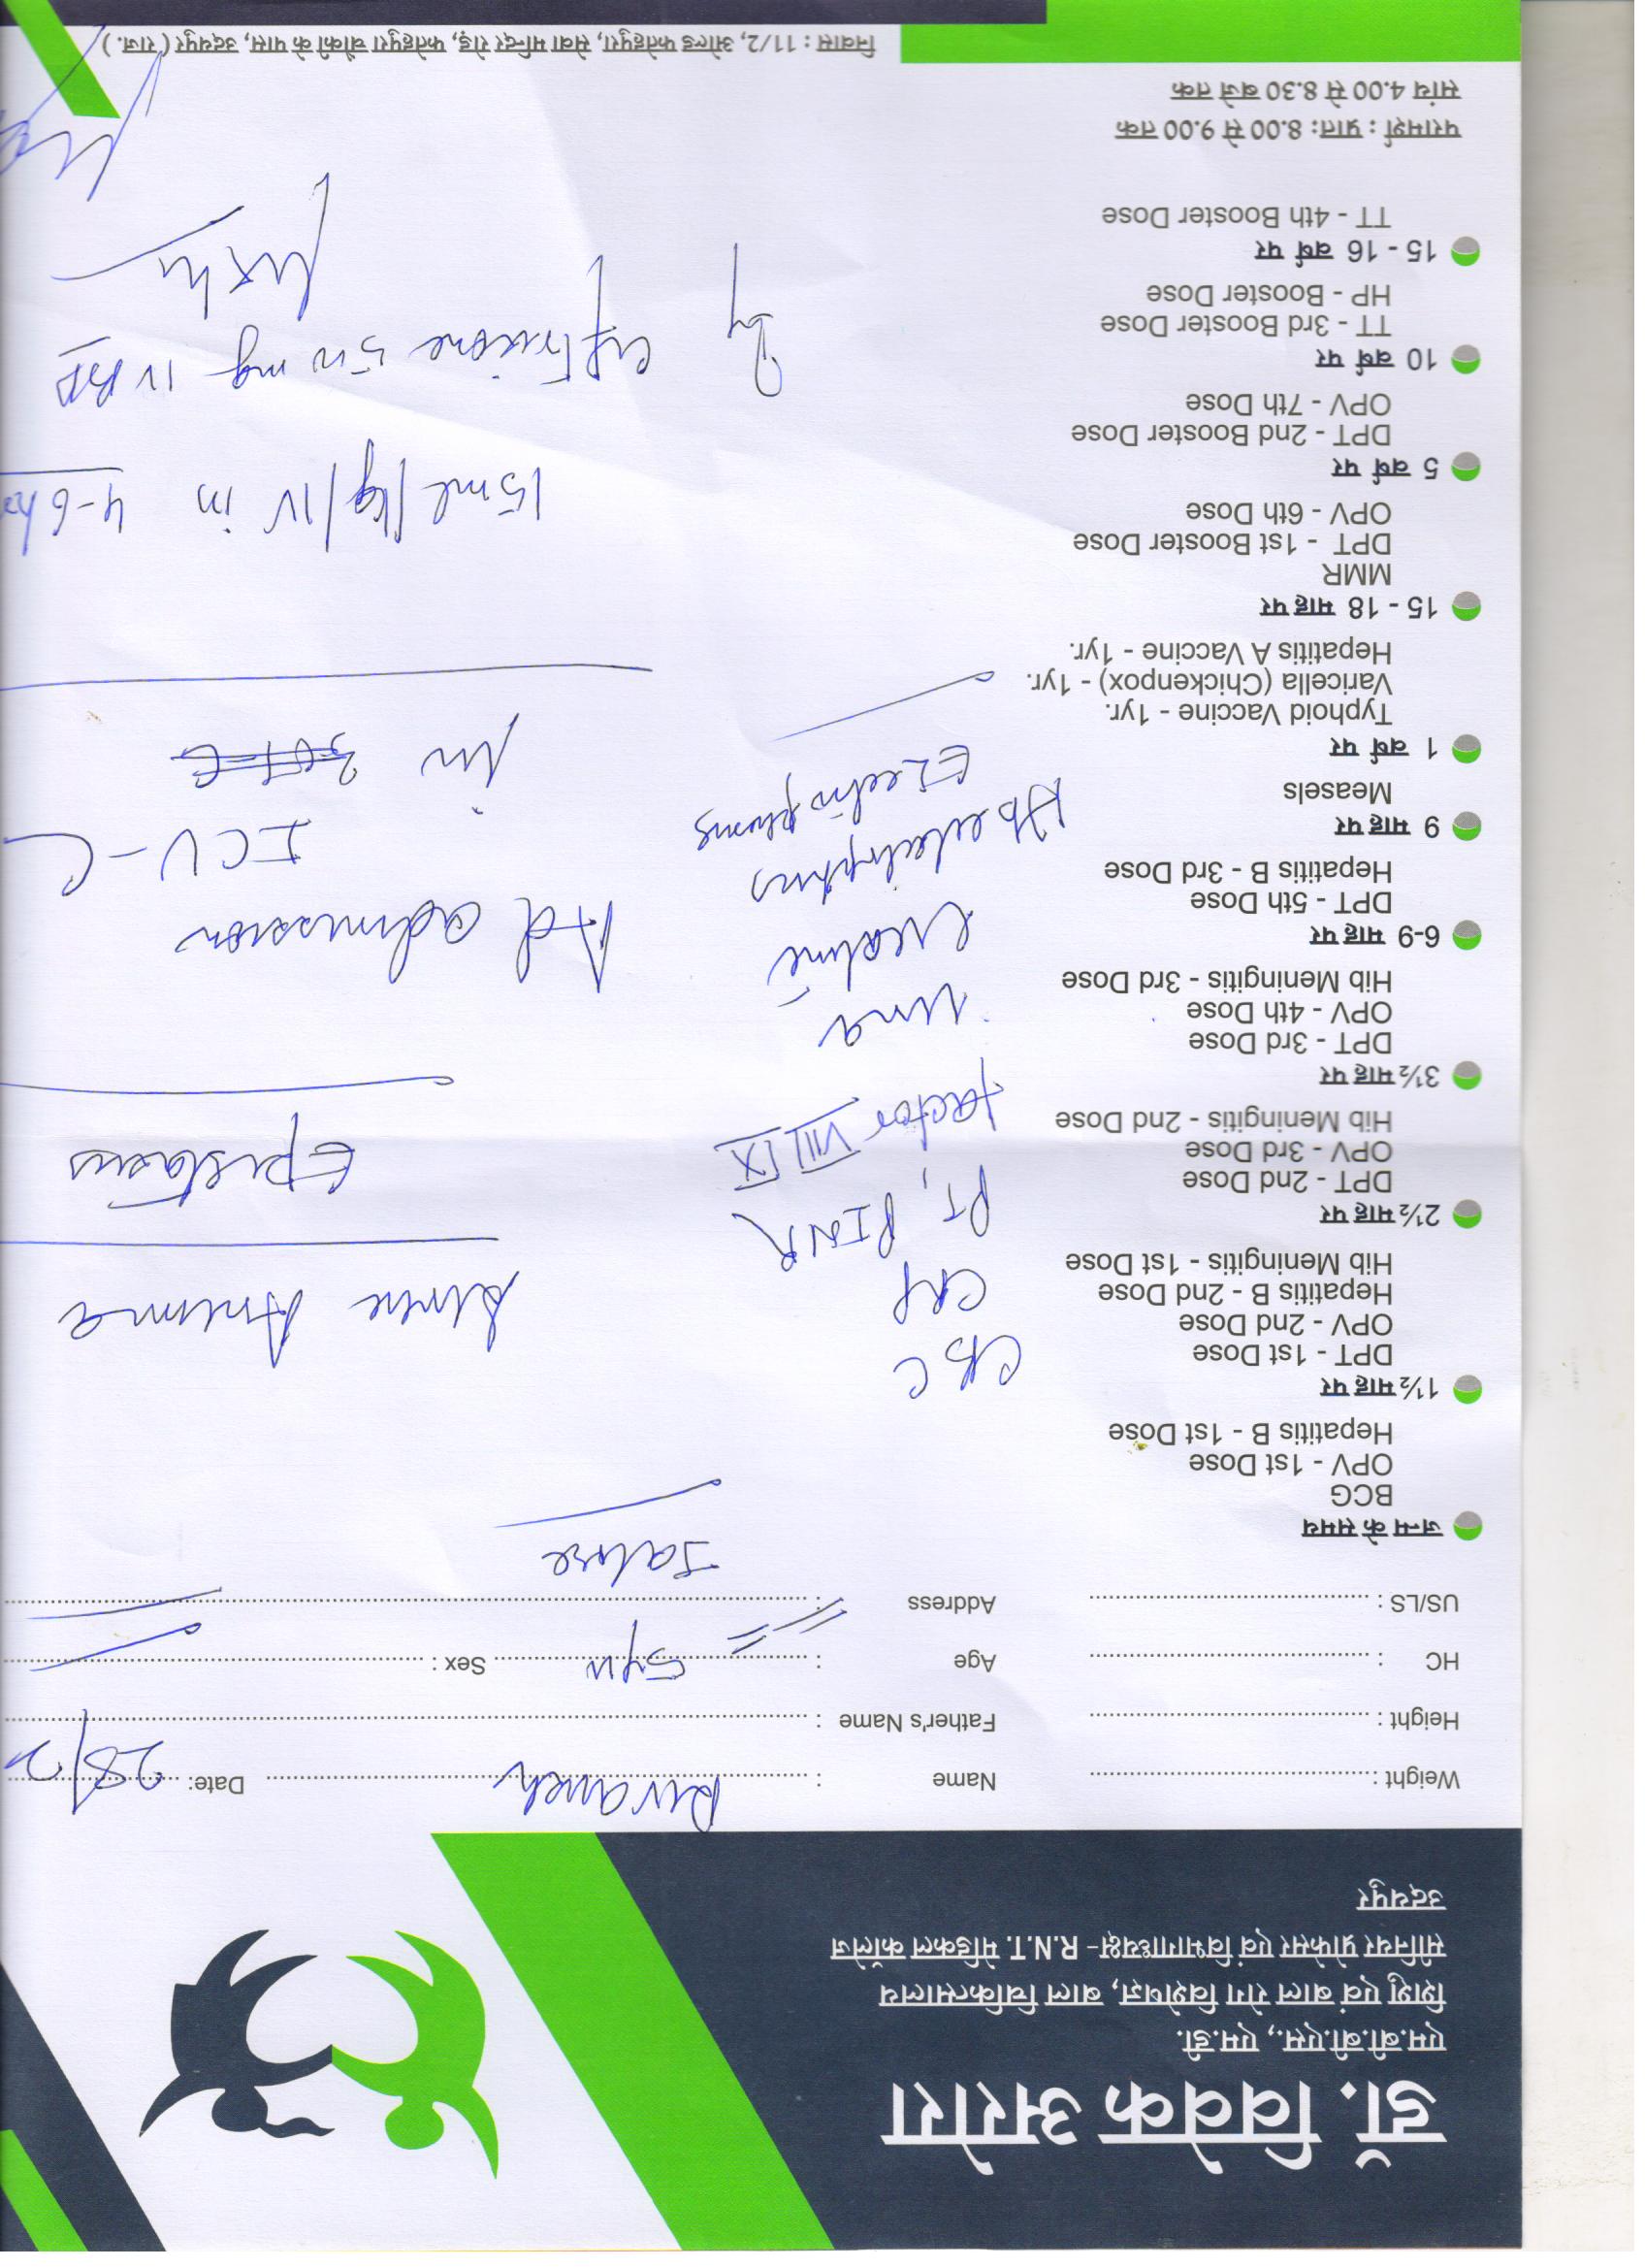 डॉ. विवेक अरोरा
एम.बी.बी.एस., एम.डी.
शिशु एवं बाल रोग विशेषज्ञ, बाल चिकित्सालय
सीनियर प्रोफेसर एवं विभागाध्यक्ष- R.N.T. मेडिकल कॉलेज
उदयपुर
Weight :
Name :
Date: 28/2
Height :
Father's Name :
HC :
Age : 5yr
Sex :
US/LS :
Address :
जन्म के समय
BCG
OPV - 1st Dose
Hepatitis B - 1st Dose
1½ माह पर
DPT - 1st Dose
OPV - 2nd Dose
Hepatitis B - 2nd Dose
Hib Meningitis - 1st Dose
2½ माह पर
DPT - 2nd Dose
OPV - 3rd Dose
Hib Meningitis - 2nd Dose
3½ माह पर
DPT - 3rd Dose
OPV - 4th Dose
Hib Meningitis - 3rd Dose
6-9 माह पर
DPT - 5th Dose
Hepatitis B - 3rd Dose
9 माह पर
Measels
1 वर्ष पर
Typhoid Vaccine - 1yr.
Varicella (Chickenpox) - 1yr.
Hepatitis A Vaccine - 1yr.
15 - 18 माह पर
MMR
DPT - 1st Booster Dose
OPV - 6th Dose
5 वर्ष पर
DPT - 2nd Booster Dose
OPV - 7th Dose
10 वर्ष पर
TT - 3rd Booster Dose
HP - Booster Dose
15 - 16 वर्ष पर
TT - 4th Booster Dose
परामर्श : प्रातः 8.00 से 9.00 तक
सांय 4.00 से 8.30 बजे तक
CBC
CRP
PT, PINR
factor VIII IX
urea
creatine
Hb
Electrophoris
Severe Anemia
Epistaxis
Ad admission
ICU - C
in
15ml/kg/IV in 4-6 hr
ceftrixone 500 mg IV BD
निवास : 11/2, ओल्ड फतेहपुरा, सेवा मन्दिर रोड़, फतेहपुरा चौकी के पास, उदयपुर ( राज. )